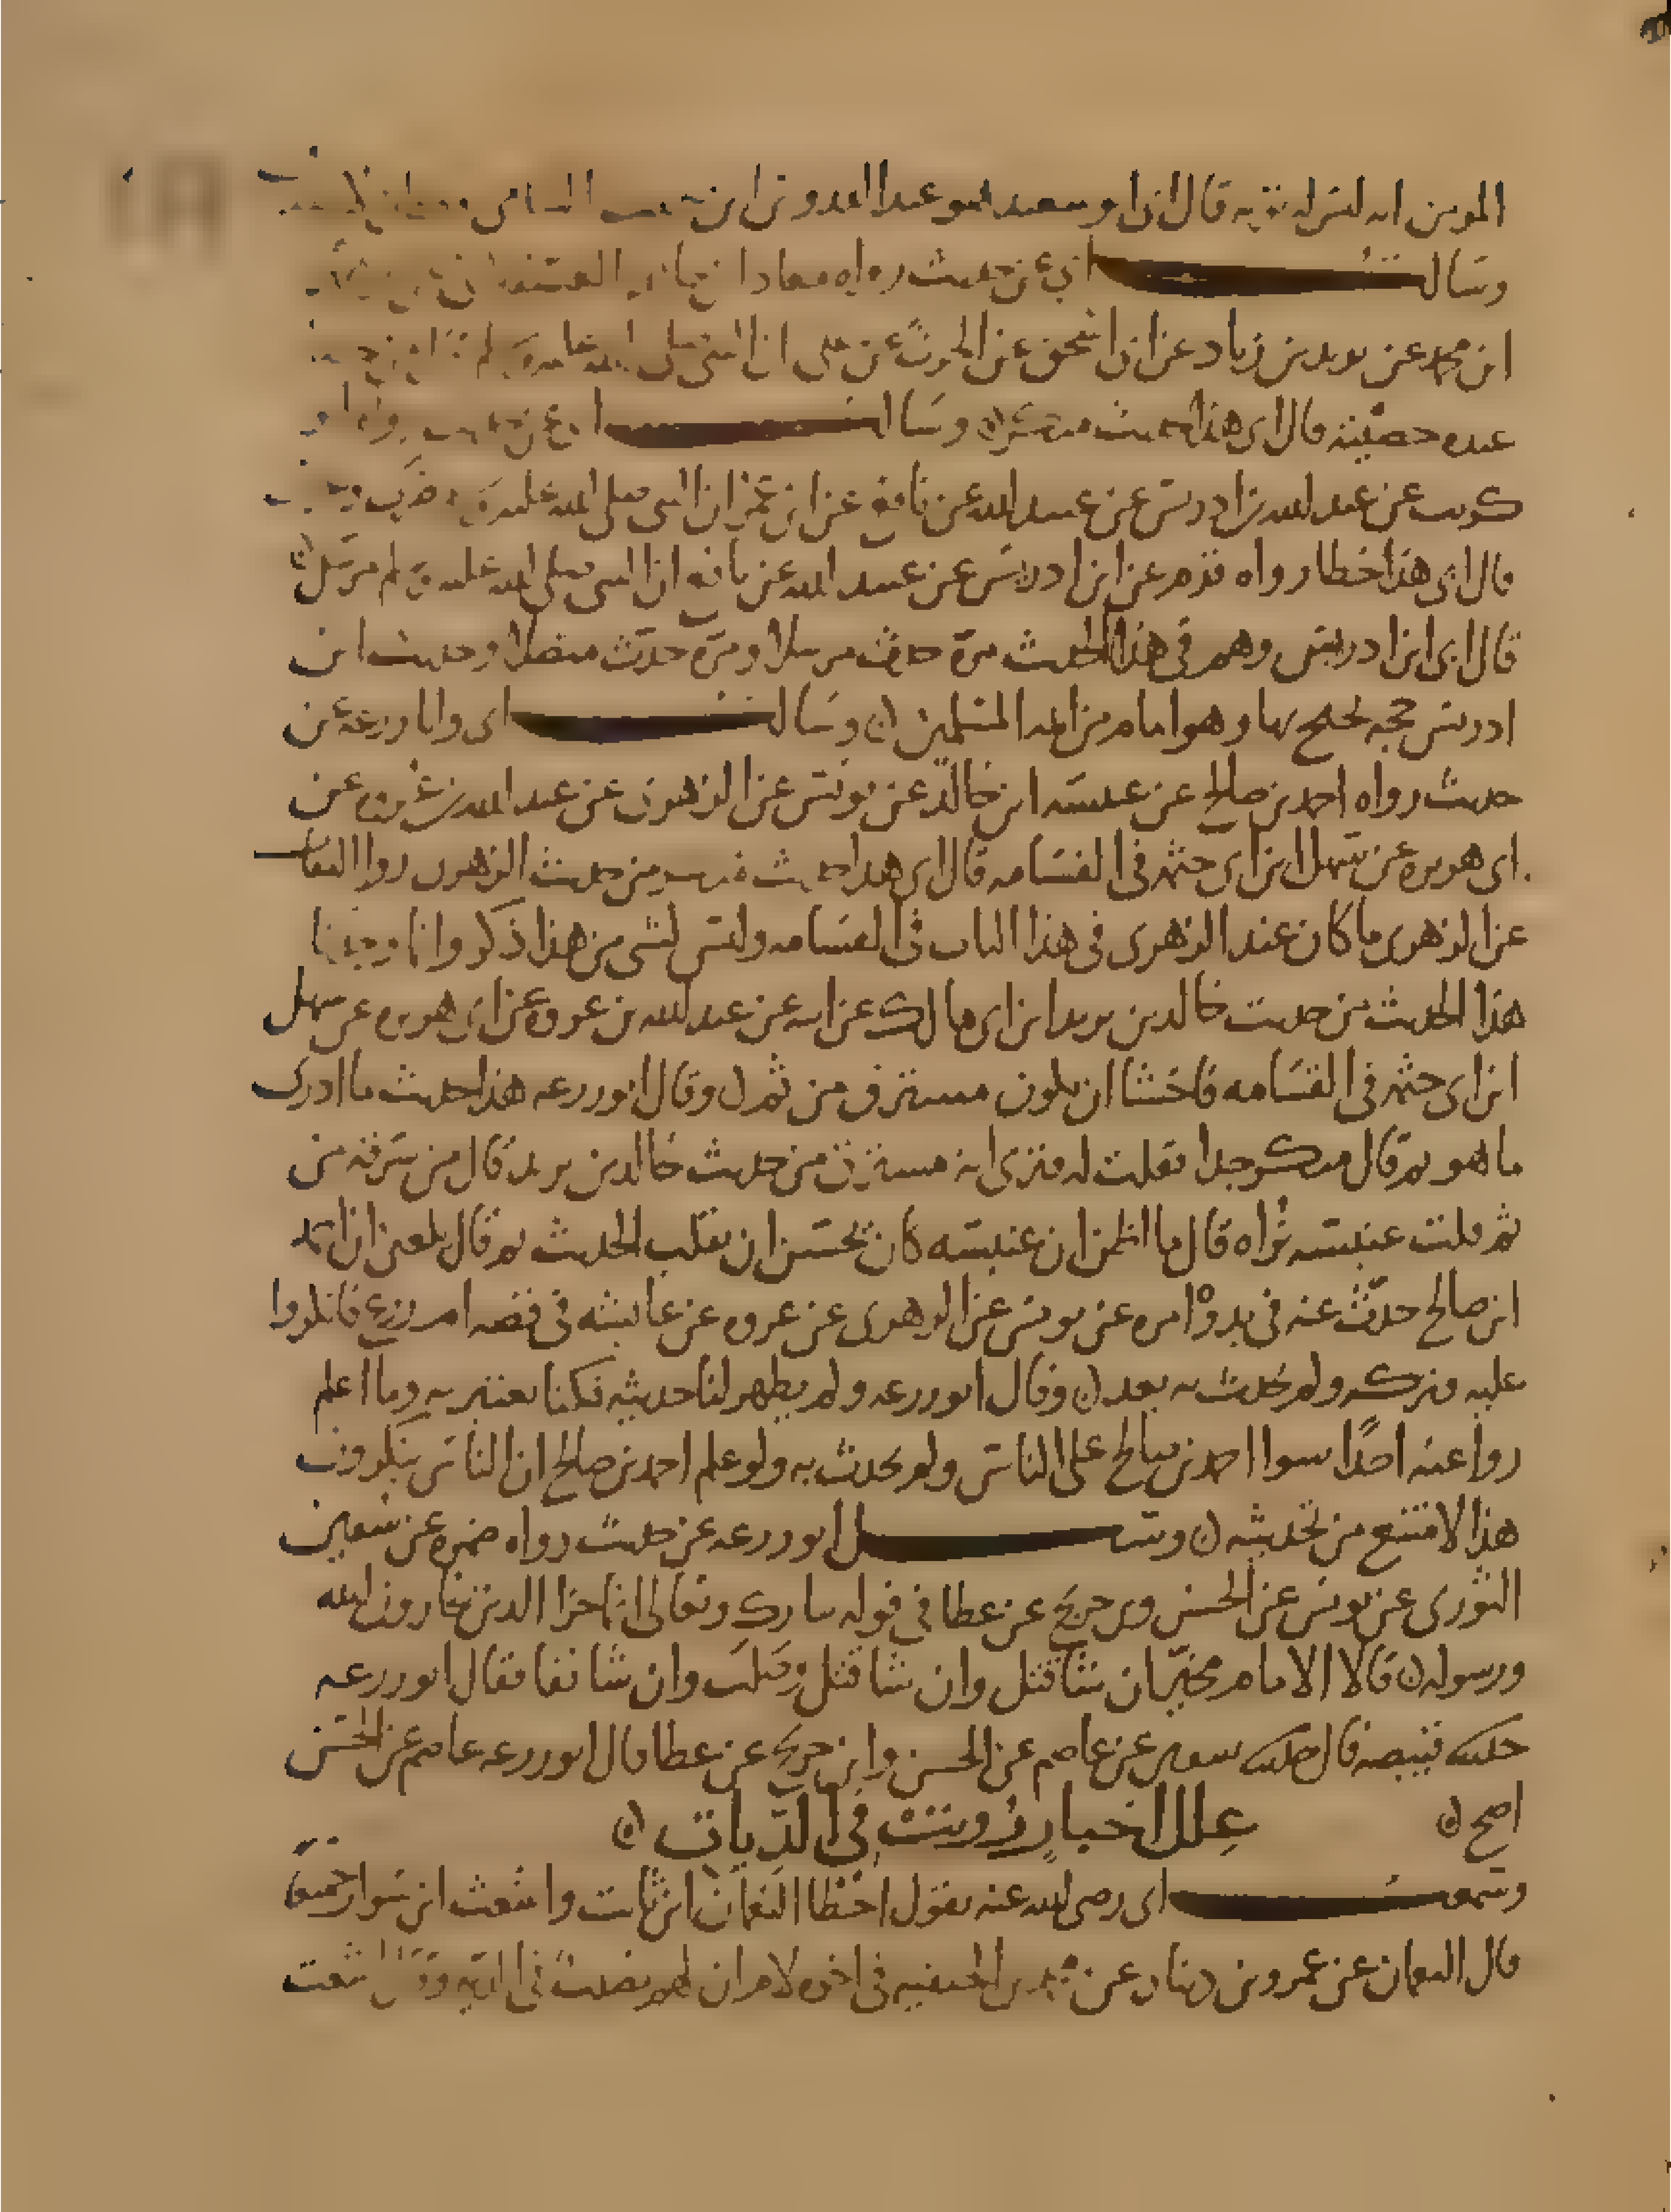 المومن انه ليس له توبه قال ابي ابو سعيد هو عبد القدوس ابن حبيب الشامي
وسالت ابي عن حديث رواه معاد
ابن محمد عن يزيد بن زياد عن ابي اسحق عن الحرث عن علي ان النبي صلى الله عليه وسلم
عبده خصيته قال ابي هذا حديث منكر ن وسالت ابي عن حديث رواه ابو
كريب عن عبد الله بن ادريس عن عبيد الله عن نافع عن ابن عمر ان النبي صلى الله عليه وسلم ضرب
قال ابي هذا خطا رواه قوم عن ابن ادريس عن عبيد الله عن نافع ان النبي صلى الله عليه وسلم مرسل ن
قال ابي ابن ادريس وهم في هذا الحديث مرة حدث مرسلا ومرة حدث متصلا وحديث ابن
ادريس حجه يحتج بها وهو امام من ايمه المسلمين ن وسالت ابي وابا زرعه عن
حديث رواه احمد بن صالح عن عنبسه ابن خالد عن يونس عن الزهري عن عبد الله بن عروه عن
ابي هريره عن سهل ابن ابي حثمه في القسامه قال ابي هذا حديث من حديث الزهري روا الثقات
عن الزهري ما كان عند الزهري في هذا الباب في القسامه وليس لشي من هذا ذكر وانا وجدنا
هذا الحديث من حديث خالد بن يزيد ابن ابي مالك عن ابيه عن عبد الله بن عروه عن ابي هريره عن سهل
ابن ابي حثمه في القسامه فاخشا ان يكون مسترق من ثم ن وقال ابو زرعه هذا حديث ما ادري
ما هو ثم قال منكر جدا فقلت له فترى انه مسترق من حديث خالد بن يزيد قال من سرقه من
ثم قلت عنبسه تراه قال ما اظن ان عنبسه كان يحسن ان يقلب الحديث ثم قال بلغني ان احمد
ابن صالح حدث عنه في بدو امره عن يونس عن الزهري عن عروه عن عايشه في قصه ام زرع فانكروا
عليه فتركه ولم يحدث به بعد ن وقال ابو زرعه ولم يظهر لنا حديثه فكنا نعتبر به وما اعلم
روا عنه احدا سوا احمد بن صالح على الناس ولم يحدث به ولو علم احمد بن صالح ان الناس ينكرون
هذا لامتنع من تحديثه ن وسـل ابو زرعه عن حديث رواه ضمره عن سفين
الثوري عن يونس عن الحسن وبن جريج عن عطا في قوله تبارك وتعالى انما جزا الدين يحاربون الله
ورسوله ن قالا الامام مخير ان شا قتل وان شا قتل وصلب وان شا نفا فقال ابو زرعه
حدثنا قبيصه قال حدثنا سفين عن عاصم عن الحسن وابن جريج عن عطا قال ابو زرعه عاصم عن الحسن
اصح ن علل اخبار رويت في الديات ن
وسمعت ابي رضى الله عنه يقول اخطا النعمان ابن ثابت واشعث ابن سوار جميعا
قال النعمان عن عمرو بن دينار عن محمد بن الحنفيه في اخوه لام ان لهم نصيب في الديه وقال اشعث